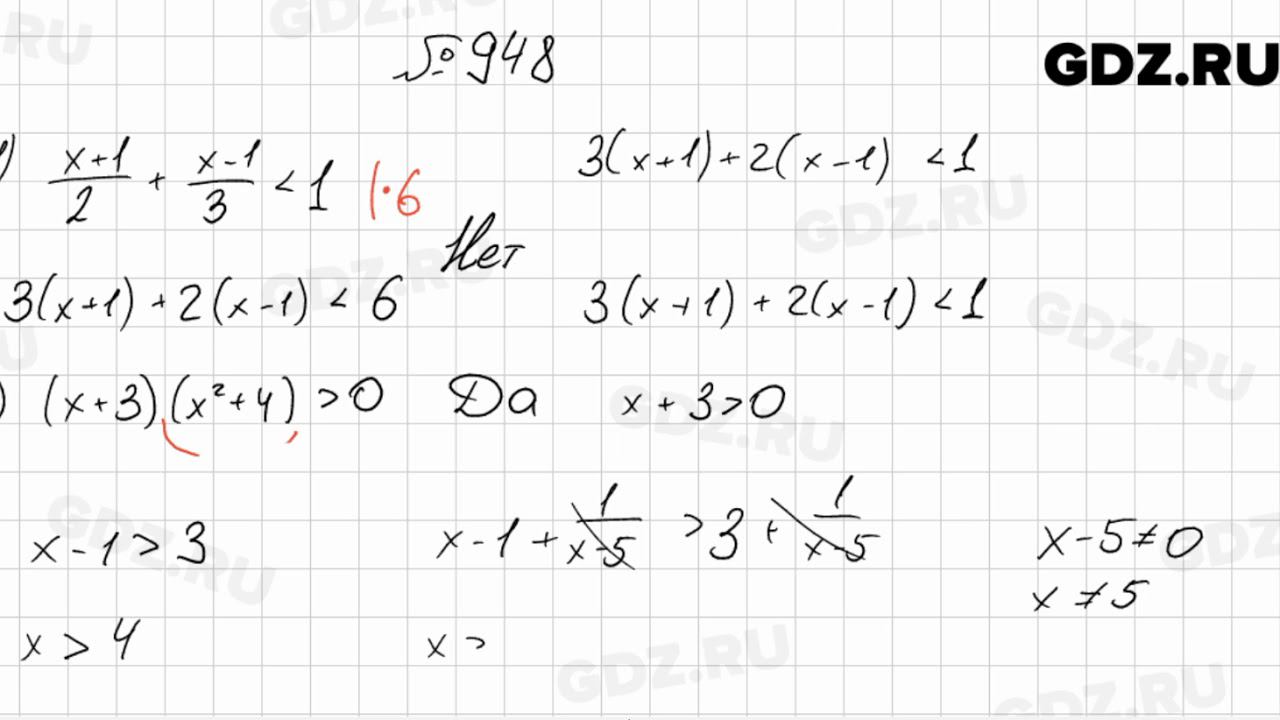 №948
GDZ.RU
1) (x+1)/2 + (x-1)/3 < 1 |·6
3(x+1)+2(x-1) < 1
Нет
3(x+1)+2(x-1) < 6
3(x+1)+2(x-1) < 1
) (x+3)(x²+4) > 0 Да x+3>0
x-1>3
x-1+1/(x-5) > 3+1/(x-5)
x-5≠0
x≠5
x > 4
x >